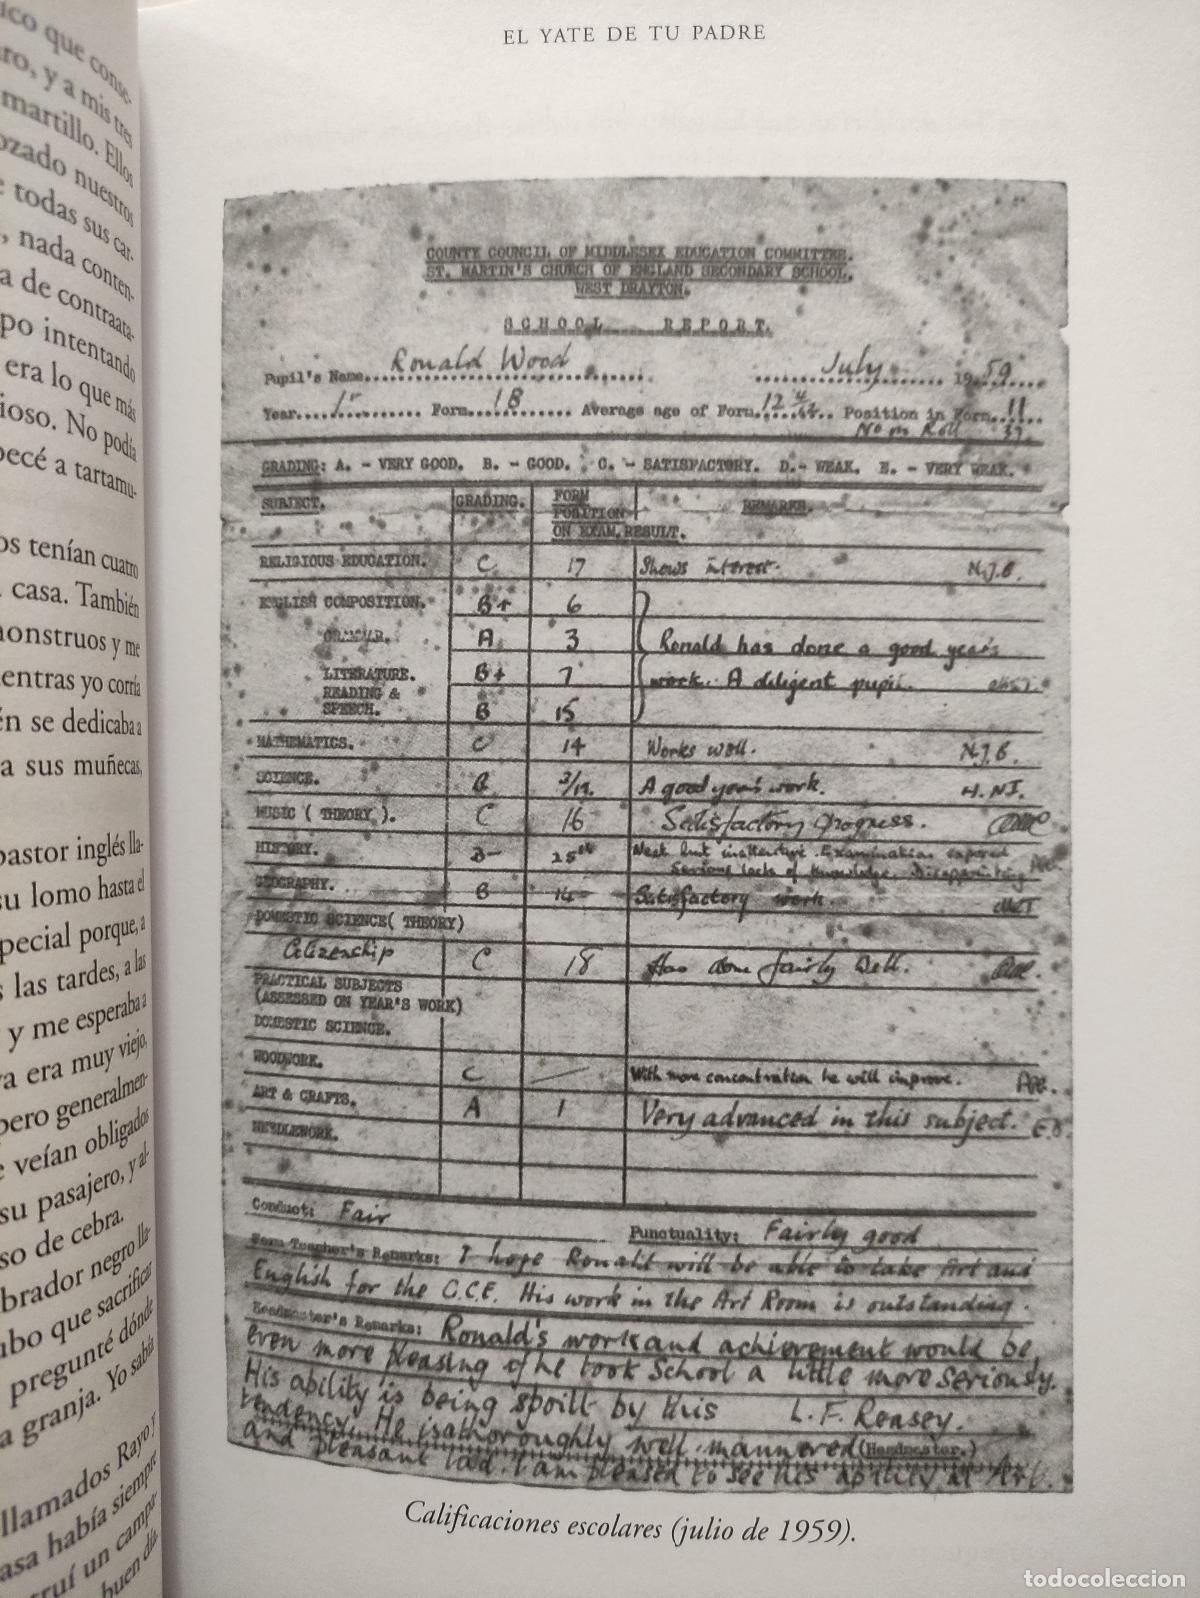 ico que conse-
ro, y a mis tres
martillo. Ellos
ozado nuestros
e todas sus car-
, nada conten-
a de contraata-
po intentando
era lo que más
ioso. No podía
pecé a tartamu-
os tenían cuatro
casa. También
monstruos y me
ientras yo corría
én se dedicaba a
a sus muñecas,
pastor inglés lla-
su lomo hasta el
special porque, a
s las tardes, a las
y me esperaba a
ya era muy viejo,
pero generalmen-
e veían obligados
su pasajero, y al-
so de cebra.
brador negro lla-
mbo que sacrificar
pregunté dónde
a granja. Yo sabía
llamados Rayo y
asa había siempre
truí un campa-
buen día
EL YATE DE TU PADRE
COUNTY COUNCIL OF MIDDLESEX EDUCATION COMMITTEE.
ST. MARTIN'S CHURCH OF ENGLAND SECONDARY SCHOOL,
WEST DRAYTON.
SCHOOL REPORT.
Pupil's Name Ronald Wood July 1959
Year 1st Form 1B Average age of Form 12 Position in Form 11
No on Roll 37
GRADING: A. - VERY GOOD. B. - GOOD. C. - SATISFACTORY. D. - WEAK. E. - VERY WEAK.
SUBJECT. GRADING. FORM POSITION ON EXAM. RESULT. REMARKS.
RELIGIOUS EDUCATION. C 17 Shows interest. N.J.B.
ENGLISH COMPOSITION. B+ 6
GRAMMAR. A 3 Ronald has done a good year's
LITERATURE. B+ 7 work. A diligent pupil.
READING & SPEECH. B 15
MATHEMATICS. C 14 Works well. N.J.B.
SCIENCE. B A good year's work.
MUSIC ( THEORY ). C 16 Satisfactory progress.
HISTORY. B- 25th Neat but inattentive. Examination exposed
serious lack of knowledge. Disappointing
GEOGRAPHY. B 14 Satisfactory work.
DOMESTIC SCIENCE( THEORY)
Citizenship C 18 Has done fairly well.
PRACTICAL SUBJECTS
(ASSESSED ON YEAR'S WORK)
DOMESTIC SCIENCE.
WOODWORK. C With more concentration he will improve.
ART & CRAFTS. A 1 Very advanced in this subject. E.B.
NEEDLEWORK.
Conduct: Fair Punctuality: Fairly good
Form Teacher's Remarks: I hope Ronald will be able to take Art and
English for the G.C.E. His work in the Art Room is outstanding.
Headmaster's Remarks: Ronald's work and achievement would be
even more pleasing if he took School a little more seriously.
His ability is being spoilt by this L.F. Rensey.
tendency. He is a thoroughly well-mannered (Headmaster.)
and pleasant lad. I am pleased to see his ability at Art.
Calificaciones escolares (julio de 1959).
todocoleccion